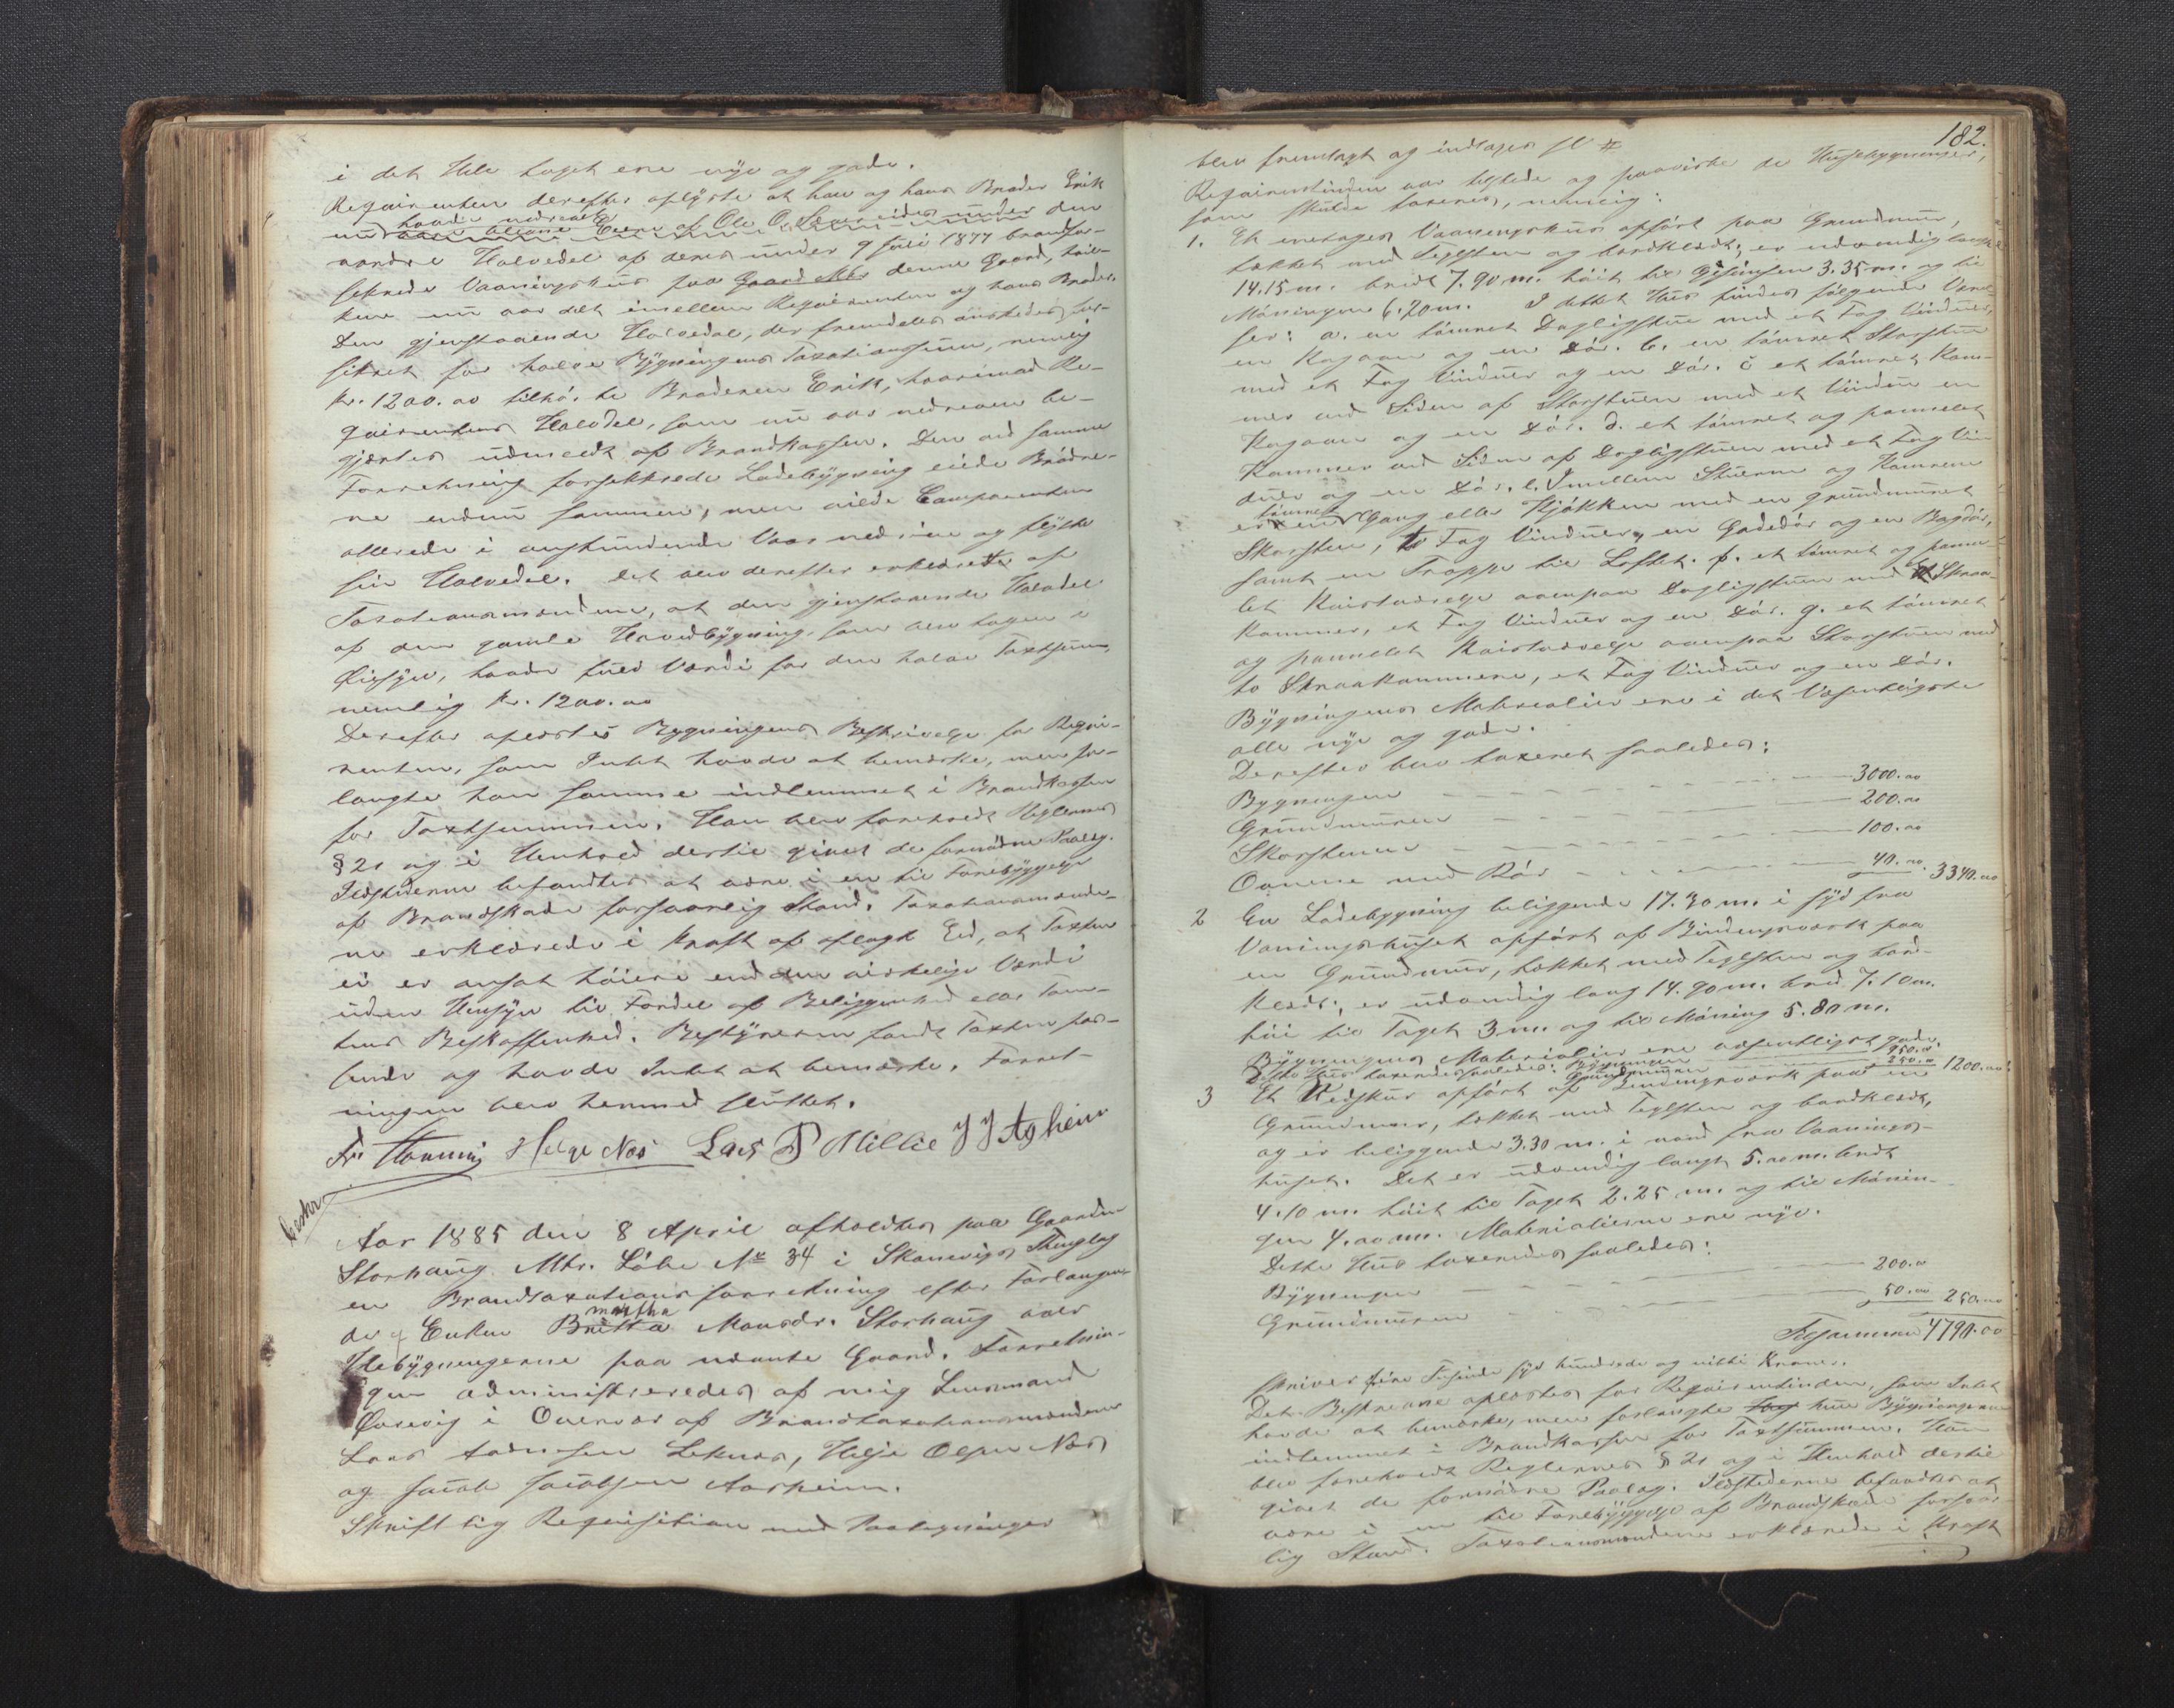 i det Hele taget ere nye og gode.
Reqvirenten derefter oplyste at han og hans Broder Erik
nu havde nedrevet den
nordre Halvedel af deres under 9 Juli 1877 brandfor-
sikrede Vaaningshus paa denne Gaard,
nu var delt imellem Reqvirenten og hans Broder.
Den gjenstaaende Halvedel, der fremdeles ønskedes for-
sikret for halve Bygningens Taxationssum, nemlig
Kr. 1200.00 tilhører Broderen Erik, hvorimod Re-
qvirentens Halvdel, som nu var nedreven be-
gjærtes udmeldt af Brandkassen. Den ved samme
Forretning forsikkrede Ladebygning eiede Brødre-
ne endnu sammen, men vilde Comparenten
allerede i anstundende Vaar nedrive og flytte
sin Halvedel. Det blev derefter erklæret af
Taxationsmændene, at den gjenstaaende Halvdel
af den gamle Hovedbygning, som blev tagen i
Øiesyn, havde fuld Værdi for den halve Taxtsum,
nemlig Kr. 1200.00
Derefter oplæstes Bygningens Beskrivelse for Reqvi-
renten, som Intet havde at bemærke, men for-
langte han samme indlemmet i Brandkassen
for Taxtsummen. Han blev foreholdt Reglernes
§ 21 og i Henhold dertil givet de fornødne Paalæg.
Ildstederne befandtes at være i en til Forebyggelse
af Brandskade forsvarlig Stand. Taxationsmænde-
ne erklærede i Kraft af aflagt Eed, at Taxten
ei er ansat høiere end den virkelige Værdi
uden Hensyn til Fordel af Beliggenhed eller Tom-
tens Beskaffenhed. Bestyreren fandt Taxten pas-
sende og havde Intet at bemærke. Forret-
ningen blev hermed sluttet.
Fr. Hanning Helge Næs Lars P Millie J J Asheim
Aar 1885 den 8 April afholdtes paa Gaarden
Storhaug Mtr. Løbe No 34 i Skanevigs Thinglag
en Brandtaxationsforretning efter Forlangen-
de af Enken Martha Monsdr. Storhaug over
Husbygningerne paa nævnte Gaard. Forretnin-
gen administreredes af mig Lensmand
i Overvær af Brandtaxationsmændene
Lars Leknæs, Helje Olsen Næs
og Jacob Jacobsen Aasheim.
Skriftlig Reqvisition med Paategninger
182.
blev fremlagt og indtages sl #
Reqvirentinden var tilstede og paaviste de Husebygninger,
som skulde taxeres, nemlig:
1. Et enetages Vaaningshus opført paa Grundmur,
tækket med Teglsten og bordklædt; er udvendig langt
14.15 m. bredt 7.90 m. høit til Gesimsen 3.35 m. og til
Møningen 6.20 m. I dette Hus findes følgende Værel-
ser: a. en tømret Dagligstue med et Fag Vinduer,
en Kagovn og en Dør. b. en tømret Storstue
med et Fag Vinduer og en Dør. c et tømret Kam-
mer ved Siden af Storstuen med et Vindue en
Kagovn og en Dør. d. et tømret og pannelet
Kammer ved Siden af Dagligstuen med et Fag Vin
duer og en Dør. e. Imellem Stuerne og Kamrene
er en tømret Gang eller Kjøkken med en grundmuret
Skorsten, to Fag Vinduer, en Gadedør og en Bagdør,
samt en Trappe til Loftet. f. et tømret og panne-
let Kvistværelse ovenpaa Dagligstuen med Skraa-
kammer, et Fag Vinduer og en Dør. g. et tømret
og pannelet Kvistværelse ovenpaa Storstuen med
to Skraakammere, et Fag Vinduer og en Dør.
Bygningens Materialier ere i det Væsentligste
alle nye og gode.
Derefter blev taxeret saaledes:
Bygningen 3000.00
Grundmuren 200.00
Skorstenen 100.00
Ovnene med Rør 40.00 3340.00
2 En Ladebygning beliggende 17.30 m. i syd fra
Vaaningshuset opført af Bindingsværk paa
en Grundmur, tækket med Teglsten og bord-
klædt; er udvendig lang 14.90 m. bred 7.10 m.
høi til Taget 3 m. og til Møning 5.80 m.
Bygningens Materialier ere væsentligst gode.
Dette Hus taxeredes saaledes: Bygningen 950.00
Grundmuren 250.00 1200.00
3 Et Vedskur opført af Bindingsværk paa en
Grundmur, tækket med Teglsten og bordklædt,
og er beliggende 3.30 m. i nord fra Vaanings-
huset. Det er udvendig langt 5.00 m. bredt
4.10 m. høit til Taget 2.25 m. og til Mønin-
gen 4.00 m. Materialierne ere nye.
Dette Hus taxeredes saaledes:
Bygningen 200.00
Grundmuren 50.00 250.00
Tilsammen 4790.00
skriver fire Tusinde syv hundrede og nitti Kroner.
Det Beskrevne oplæstes for Reqvirentinden, som Intet
havde at bemærke, men forlangte hun Bygningerne
indlemmet i Brandkassen for Taxtsummen. Hun
blev foreholdt Reglernes § 21 og i Henhold dertil
givet de fornødne Paalæg. Ildstederne befandtes at
være i en til Forebyggelse af Brandskade forsvar-
lig Stand. Taxationsmændene erklærede i Kraft